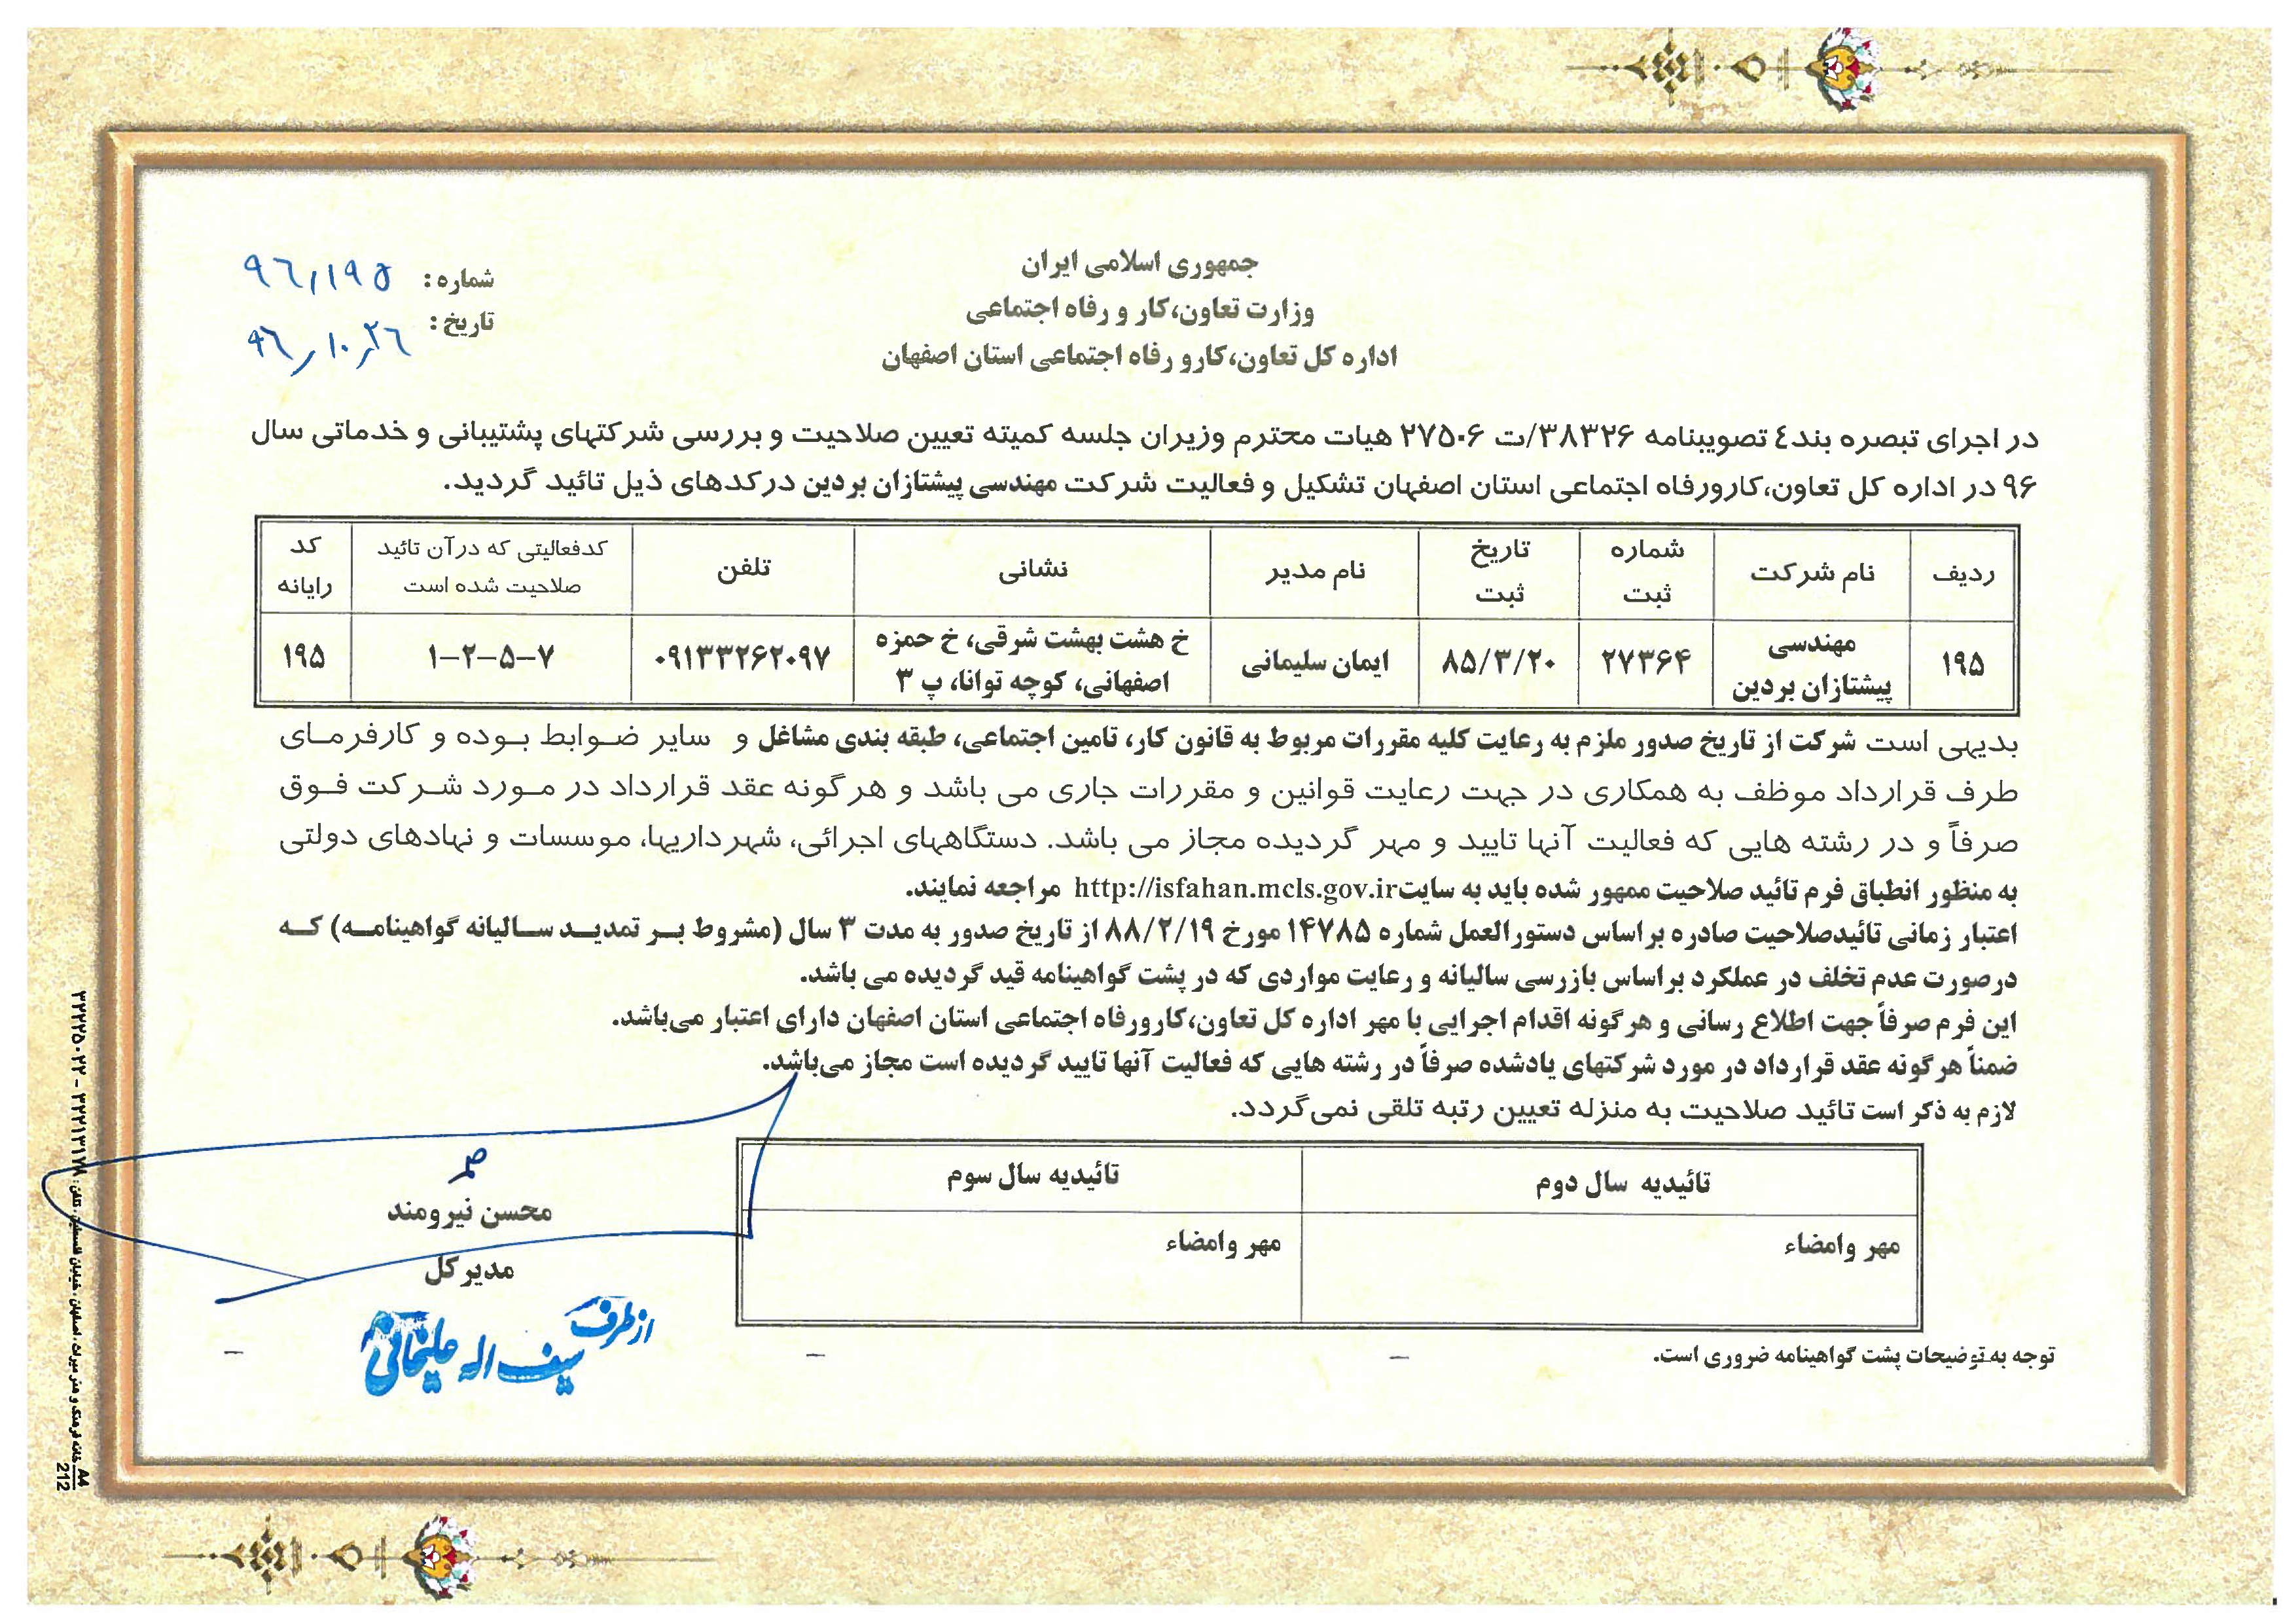 جمهوری اسلامی ایران
وزارت تعاون،کار و رفاه اجتماعی
اداره کل تعاون،کارو رفاه اجتماعی استان اصفهان
شماره : ۹۶/۱۹۵
تاریخ : ۹۶/۱۰/۲۶
در اجرای تبصره بند٤ تصویبنامه ۳۸۳۲۶/ت ۲۷۵۰۶ هیات محترم وزیران جلسه کمیته تعیین صلاحیت و بررسی شرکتهای پشتیبانی و خدماتی سال
۹۶ در اداره کل تعاون،کارورفاه اجتماعی استان اصفهان تشکیل و فعالیت شرکت مهندسی پیشتازان بردین درکدهای ذیل تائید گردید.
ردیف
نام شرکت
شماره
ثبت
تاریخ
ثبت
نام مدیر
نشانی
تلفن
کدفعالیتی که درآن تائید
صلاحیت شده است
کد
رایانه
۱۹۵
مهندسی
پیشتازان بردین
۲۷۳۶۴
۸۵/۳/۲۰
ایمان سلیمانی
خ هشت بهشت شرقی، خ حمزه
اصفهانی، کوچه توانا، پ ۳
۰۹۱۳۳۲۶۲۰۹۷
۱-۲-۵-۷
۱۹۵
بدیهی است شرکت از تاریخ صدور ملزم به رعایت کلیه مقررات مربوط به قانون کار، تامین اجتماعی، طبقه بندی مشاغل و سایر ضوابط بوده و کارفرمای
طرف قرارداد موظف به همکاری در جهت رعایت قوانین و مقررات جاری می باشد و هرگونه عقد قرارداد در مورد شرکت فوق
صرفاً و در رشته هایی که فعالیت آنها تایید و مهر گردیده مجاز می باشد. دستگاههای اجرائی، شهرداریها، موسسات و نهادهای دولتی
به منظور انطباق فرم تائید صلاحیت ممهور شده باید به سایت http://isfahan.mcls.gov.ir مراجعه نمایند.
اعتبار زمانی تائیدصلاحیت صادره براساس دستورالعمل شماره ۱۴۷۸۵ مورخ ۸۸/۲/۱۹ از تاریخ صدور به مدت ۳ سال (مشروط بر تمدید سالیانه گواهینامه) که
درصورت عدم تخلف در عملکرد براساس بازرسی سالیانه و رعایت مواردی که در پشت گواهینامه قید گردیده می باشد.
این فرم صرفاً جهت اطلاع رسانی و هرگونه اقدام اجرایی با مهر اداره کل تعاون،کارورفاه اجتماعی استان اصفهان دارای اعتبار می‌باشد.
ضمناً هرگونه عقد قرارداد در مورد شرکتهای یادشده صرفاً در رشته هایی که فعالیت آنها تایید گردیده است مجاز می‌باشد.
لازم به ذکر است تائید صلاحیت به منزله تعیین رتبه تلقی نمی‌گردد.
تائیدیه سال دوم
تائیدیه سال سوم
مهر وامضاء
مهر وامضاء
محسن نیرومند
مدیرکل
از طرف
سیف اله علیخانی
توجه به توضیحات پشت گواهینامه ضروری است.
A4
212
خانه فرهنگ و هنر میراث ، اصفهان ، خیابان فلسطین ، تلفن : ۳۲۲۱۳۱۷۸ - ۳۲۲۲۵۰۲۲